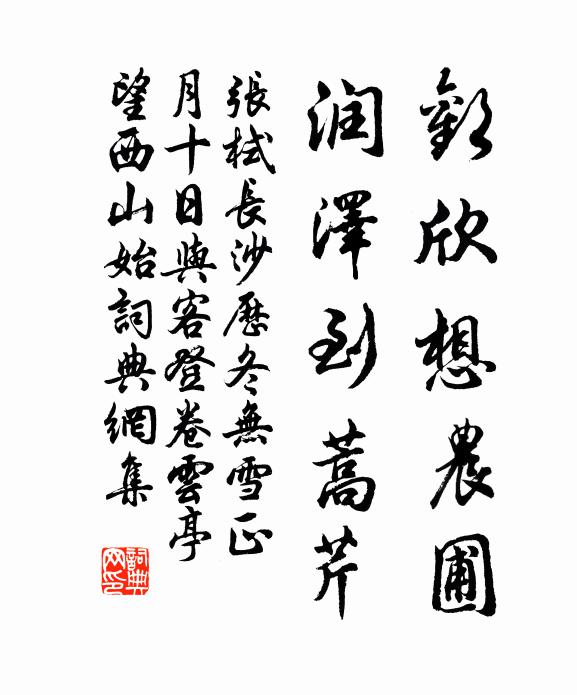 歡欣想農圃
润澤到蒿芹
張栻長沙歷冬無雪正
月十日與客登卷雲亭
望西山始詞典網集
詞典网印